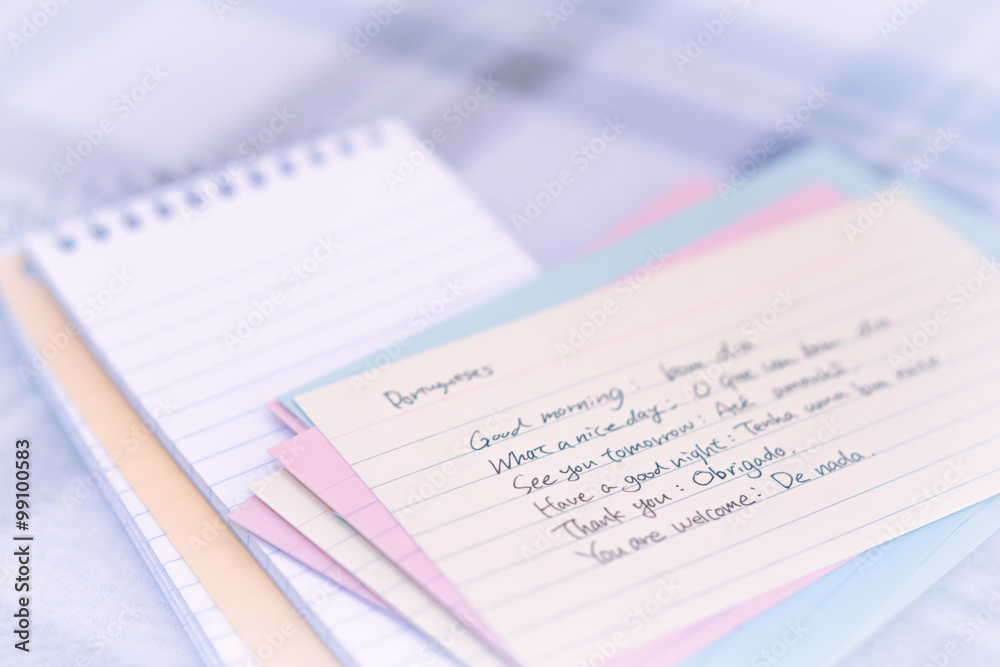 Portugueses
Good morning: bom dia
What a nice day: O que um bom dia
See you tomorrow: Até amanhã.
Have a good night: Tenha uma boa noite
Thank you: Obrigado.
You are welcome: De nada.
Adobe Stock | #99100583